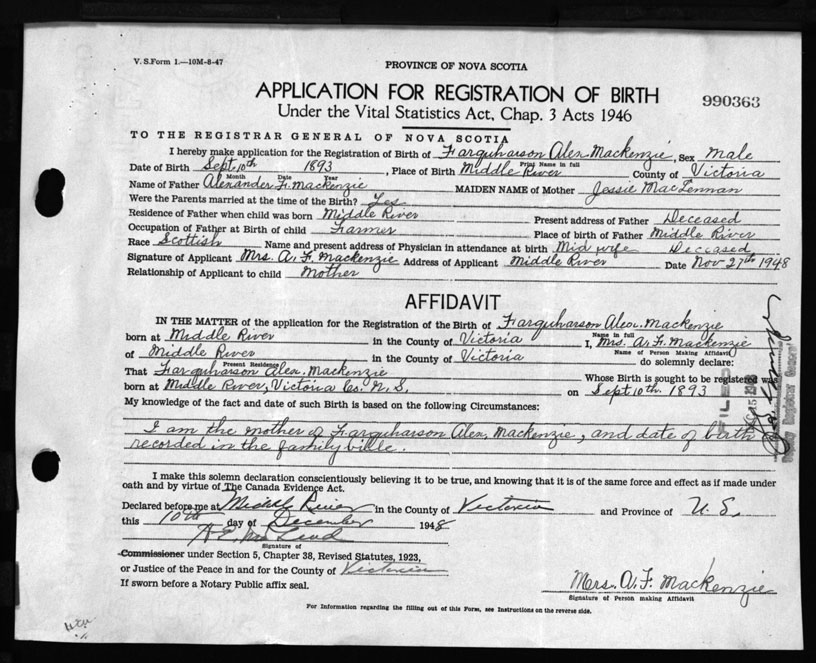 V. S. Form 1.—10M-8-47
PROVINCE OF NOVA SCOTIA
APPLICATION FOR REGISTRATION OF BIRTH
990363
Under the Vital Statistics Act, Chap. 3 Acts 1946
TO THE REGISTRAR GENERAL OF NOVA SCOTIA
I hereby make application for the Registration of Birth of Farquharson Alex. Mackenzie, Sex male
Print Name in full
Date of Birth Sept. 10th 1893, Place of Birth Middle River County of Victoria
Month Date Year
Name of Father Alexander F. Mackenzie MAIDEN NAME of Mother Jessie MacLennan
Were the Parents married at the time of the Birth? Yes
Residence of Father when child was born Middle River Present address of Father Deceased
Occupation of Father at Birth of child Farmer Place of birth of Father Middle River
Race Scottish Name and present address of Physician in attendance at birth Mid wife Deceased
Signature of Applicant Mrs. A. F. Mackenzie Address of Applicant Middle River Date Nov 27th 1948
Relationship of Applicant to child Mother
AFFIDAVIT
IN THE MATTER of the application for the Registration of the Birth of Farquharson Alex. Mackenzie
Name in full
born at Middle River in the County of Victoria I, Mrs. A. F. Mackenzie
Name of Person Making Affidavit
of Middle River in the County of Victoria do solemnly declare:
Present Residence
That Farquharson Alex. Mackenzie Whose Birth is sought to be registered was
born at Middle River, Victoria Co. N. S. on Sept 10th. 1893
My knowledge of the fact and date of such Birth is based on the following Circumstances:
I am the mother of Farquharson Alex. Mackenzie, and date of birth
recorded in the family bible.
I make this solemn declaration conscientiously believing it to be true, and knowing that it is of the same force and effect as if made under
oath and by virtue of The Canada Evidence Act.
Declared before me at Middle River in the County of Victoria and Province of N. S.
this 10th day of December 1948
Signature of
Commissioner under Section 5, Chapter 38, Revised Statutes, 1923,
or Justice of the Peace in and for the County of Victoria
If sworn before a Notary Public affix seal.
Mrs. A. F. Mackenzie
Signature of Person making Affidavit
For Information regarding the filling out of this Form, see Instructions on the reverse side.
FILED